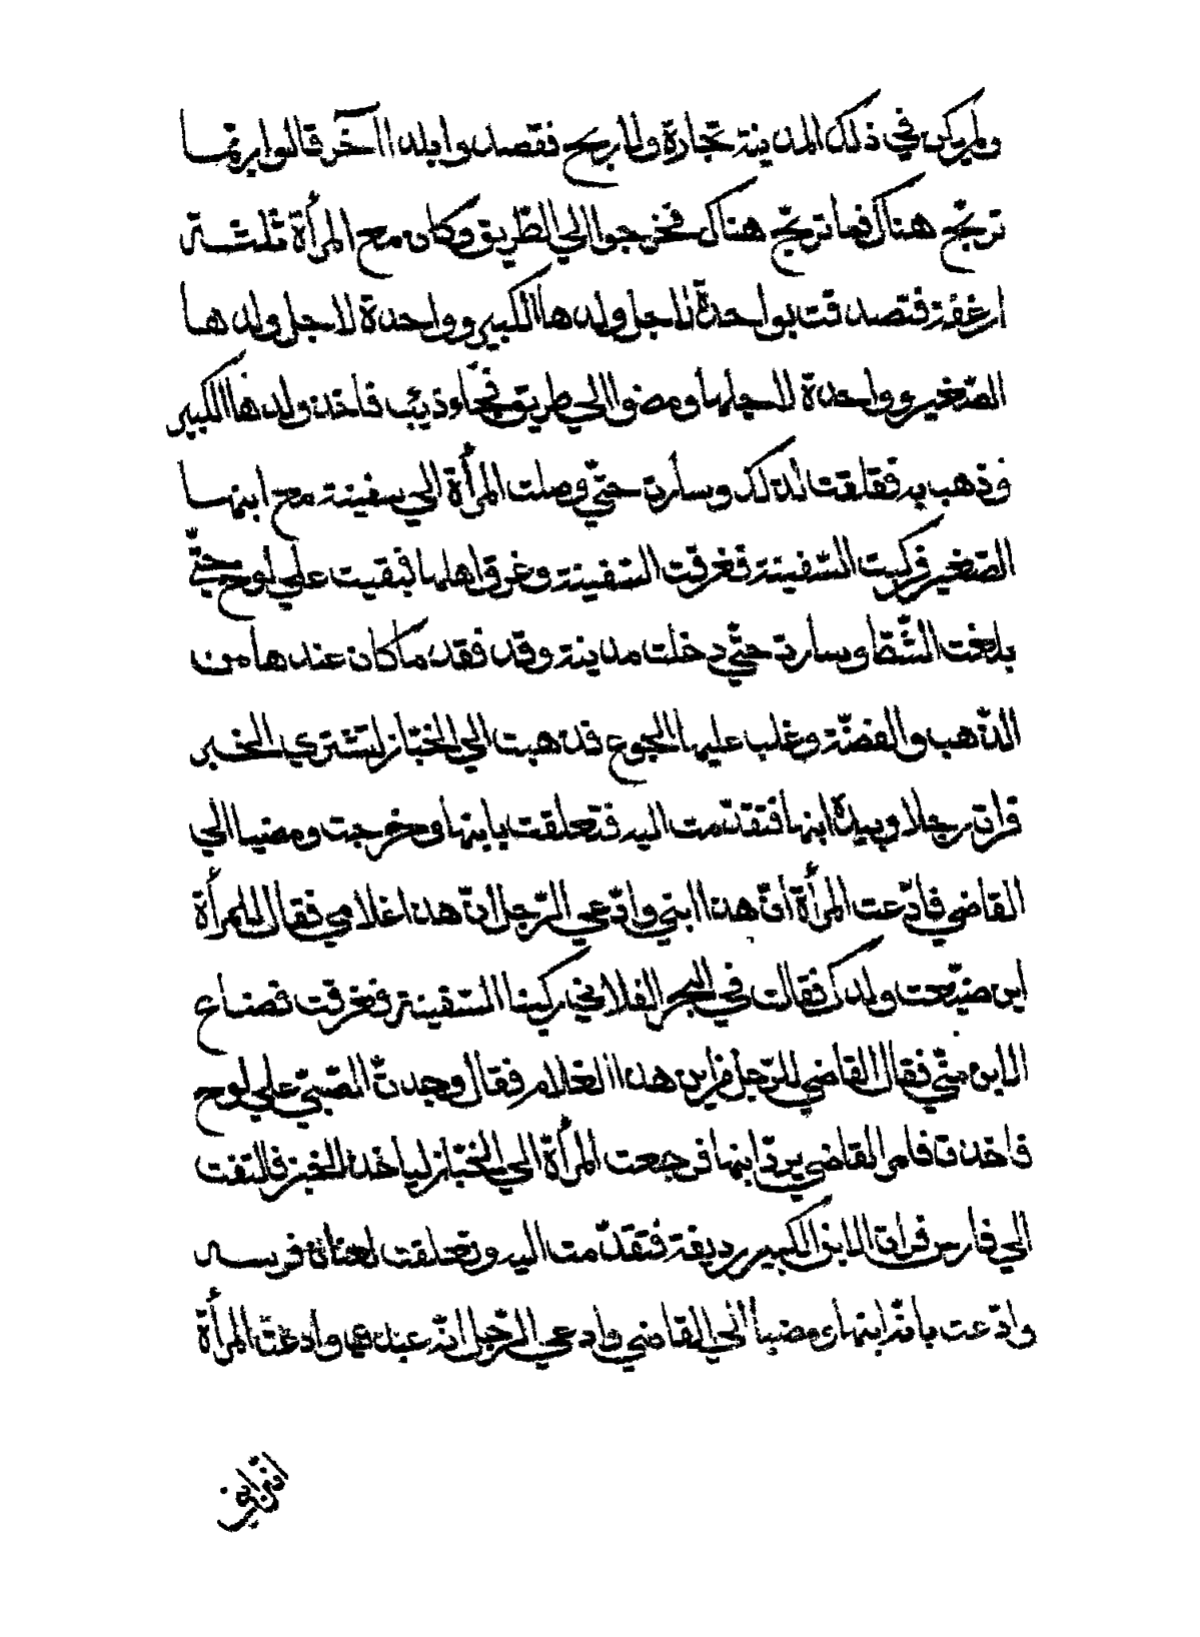 ولم يكن في ذلك المدينة تجارة ولا ربح فقصدوا بلدا آخر قالوا ربّما
تربّح هناك فما تربّح هناك فخرجوا الي الطّريق وكان مع المرأة ثلثـة
ارغفة فتصدقت بواحدة لاجل ولدها الكبير وواحدة لاجل ولدها
الصّغير وواحدة لاجلها ومضوا الي طريق فجاء ذيب فاخذ ولدها الكبير
وذهب به فقلقت لذلك وسارت حتّي وصلت المرأة الي سفينة مع ابنها
الصّغير فركبت السّفينة فغرقت السّفينة وغرق اهلها فبقيت علي لوح حتّي
بلغت الشّط وسارت حتّي دخلت مدينة وقد فقد ما كان عندها من
الذّهب والفضّة وغلب عليها الجوع فذهبت الي الخبّاز لتشتري الخبز
فرات رجلا وبيده ابنها فتقدّمت اليه فتعلقت بابنها وخرجت ومضيا الي
القاضي فادّعت المرأة انّ هذا ابني وادّعي الرّجل انّ هذا غلامي فقال للمرأة
اين ضيّعت ولدك فقالت في البحر الفلاني ركبنا السّفينة فغرقت فضاع
الابن منّي فقال القاضي للرّجل من اين هذا الغلام فقال وجدتّ الصّبيّ علي لوح
فاخذته فامر القاضي بردّ ابنها فرجعت المرأة الي الخبّاز لياخذ الخبز فالتفت
الي فارس فرات الابن الكبير رديفه فتقدّمت اليه وتعلقت بعنان فرسه
وادّعت بانّه ابنها ومضيا الي القاضي وادعي الرّجل انّه عبدي وادّعت المرأة
انّه ابني